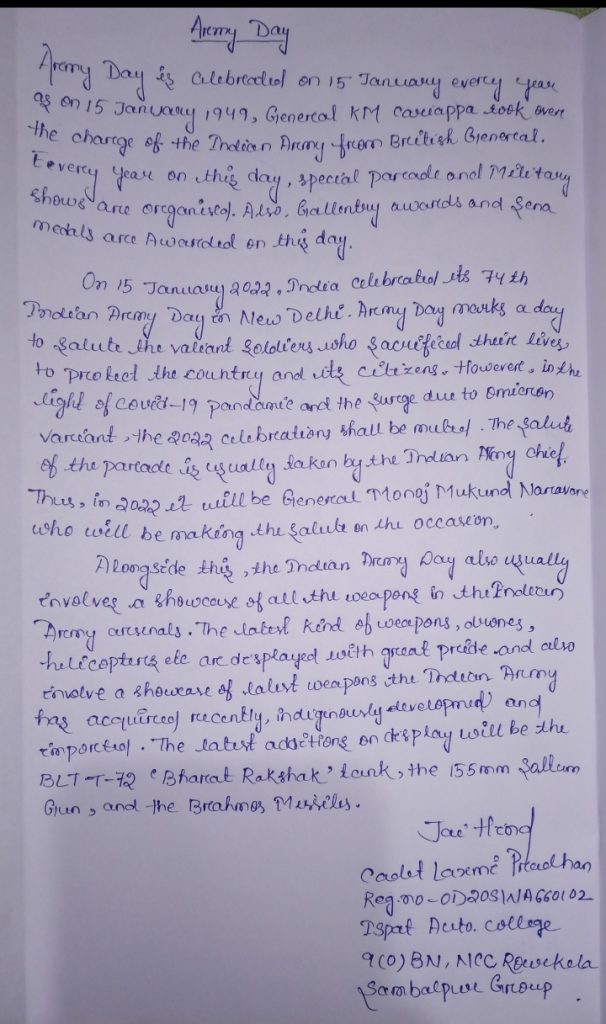 Army Day
Army Day is celebrated on 15 January every year
as on 15 January 1949, General KM Cariappa took over
the charge of the Indian Army from British General.
Eevery year on this day, special parade and Military
shows are organised. Also, Gallentry awards and Sena
medals are Awarded on this day.
On 15 January 2022, India celebrated its 74th
Indian Army Day in New Delhi. Army Day marks a day
to salute the valiant soldiers who sacrificed their lives
to protect the country and its citizens. However, in the
light of covid-19 pandamic and the surge due to omicron
variant, the 2022 celebrations shall be muted. The salute
of the parade is usually taken by the Indian Army chief.
Thus, in 2022 it will be General Monoj Mukund Naravane
who will be making the salute on the occasion.
Alongside this, the Indian Army Day also usually
involves a showcase of all the weapons in the Indian
Army arsenals. The latest kind of weapons, drones,
helicopters etc are displayed with great pride and also
involve a showcase of latest weapons the Indian Army
has acquired recently, indigenously developed and
imported. The latest additions on display will be the
BLT T-72 'Bharat Rakshak' tank, the 155mm Soltam
Gun, and the Brahmos Missiles.
Jai Hind
Cadet Laxmi Pradhan
Reg.no-OD20SWA660102
Ispat Auto. college
9(O)BN, NCC Rourkela
Sambalpur Group